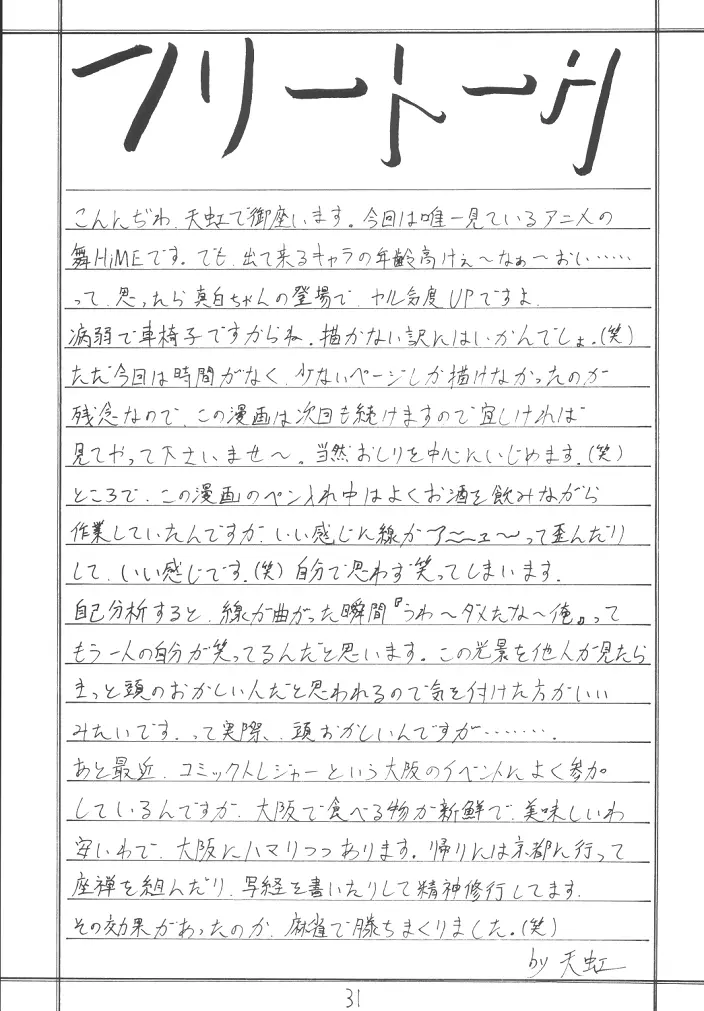 フリートーク
こんんぢわ、天虹で御座います。今回は唯一見ているアニメの
舞HiMEです。でも、出て来るキャラの年齢高けぇ〜なぁ〜おい……
って、思ったら真白ちゃんの登場で、ヤル気度UPですよ、
病弱で車椅子ですからね。描かない訳にはいかんでしょ。(笑)
ただ今回は時間がなく、少ないページしか描けなかったのが
残念なので、この漫画は次回も続けますので宜しければ
見てやって下さいませ〜。当然おしりを中心にいじめます。(笑)
ところで、この漫画のペン入れ中はよくお酒を飲みながら
作業していたんですが、いい感じに線が〜って歪んだり
して、いい感じです。(笑)自分で思わず笑ってしまいます。
自己分析すると、線が曲がった瞬間『うわ〜ダメだな〜俺』って
もう一人の自分が笑ってるんだと思います。この光景を他人が見たら
きっと頭のおかしい人だと思われるので気を付けた方がいい
みたいです。って実際、頭おかしいんですが………。
あと最近、コミックトレジャーという大阪のイベントによく参加
しているんですが、大阪で食べる物が新鮮で、美味しいわ
安いわで、大阪にハマりつつあります。帰りには京都に行って
座禅を組んだり、写経を書いたりして精神修行してます。
その効果があったのか、麻雀で勝ちまくりました。(笑)
by 天虹
31